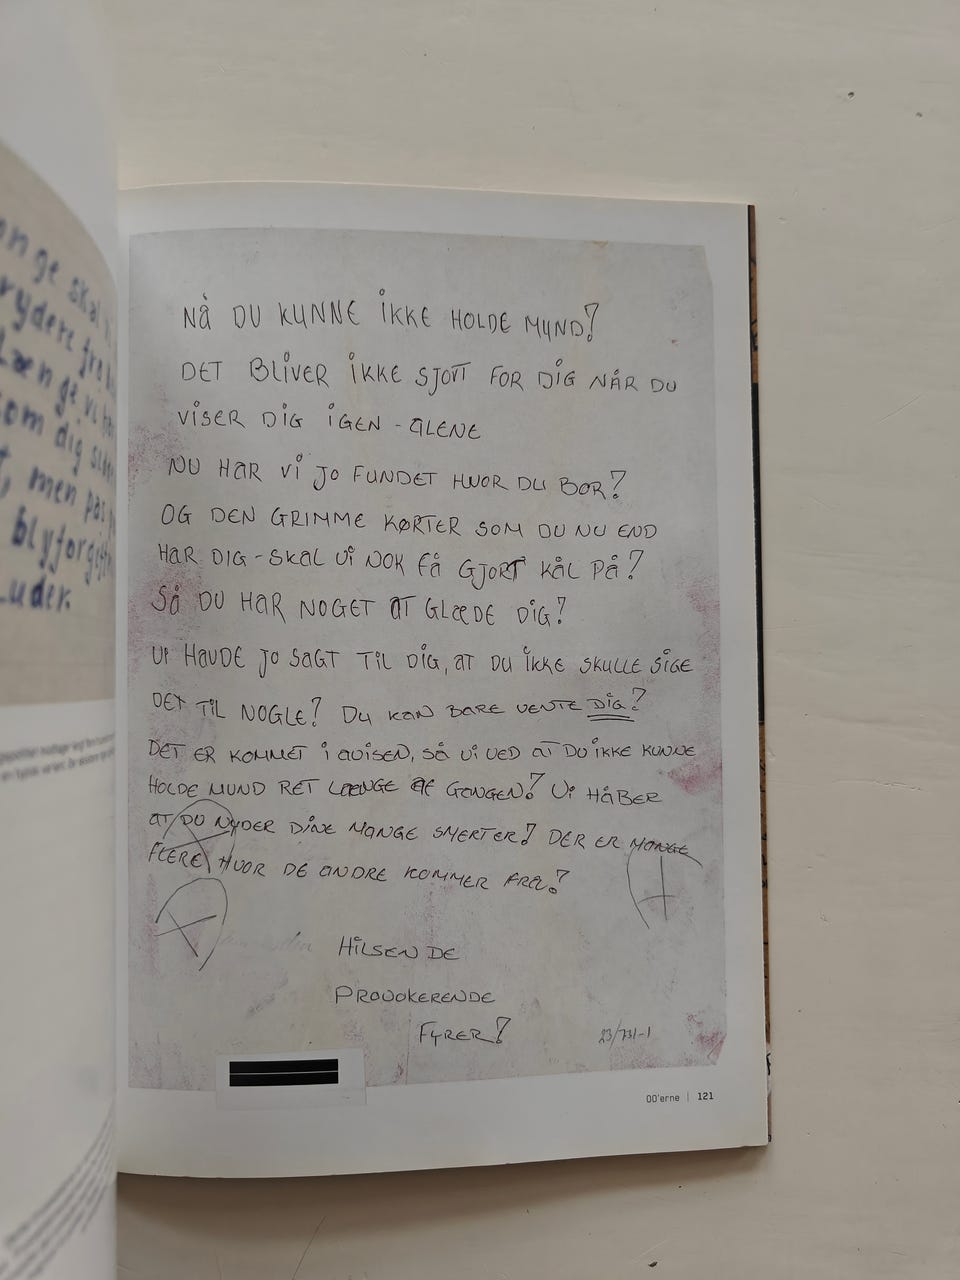 NÅ DU KUNNE IKKE HOLDE MUND!
DET BLIVER IKKE SJOVT FOR DIG NÅR DU
VISER DIG IGEN - ALENE
NU HAR VI JO FUNDET HVOR DU BOR!
OG DEN GRIMME KØRTER SOM DU NU END
HAR DIG - SKAL VI NOK FÅ GJORT KÅL PÅ!
SÅ DU HAR NOGET AT GLÆDE DIG!
VI HAVDE JO SAGT TIL DIG, AT DU IKKE SKULLE SIGE
DET TIL NOGLE! DU KAN BARE VENTE DIG!
DET ER KOMMET I AVISEN, SÅ VI VED AT DU IKKE KUNNE
HOLDE MUND RET LÆNGE AF GANGEN! VI HÅBER
AT DU NYDER DINE MANGE SMERTER! DER ER MANGE
FLERE HVOR DE ANDRE KOMMER FRA!
HILSEN DE
PROVOKERENDE
FYRER!
23/731-1
00'erne | 121
nge skal
rydere fra
længe vi
om dig
men pas
blyforgift
Luder.